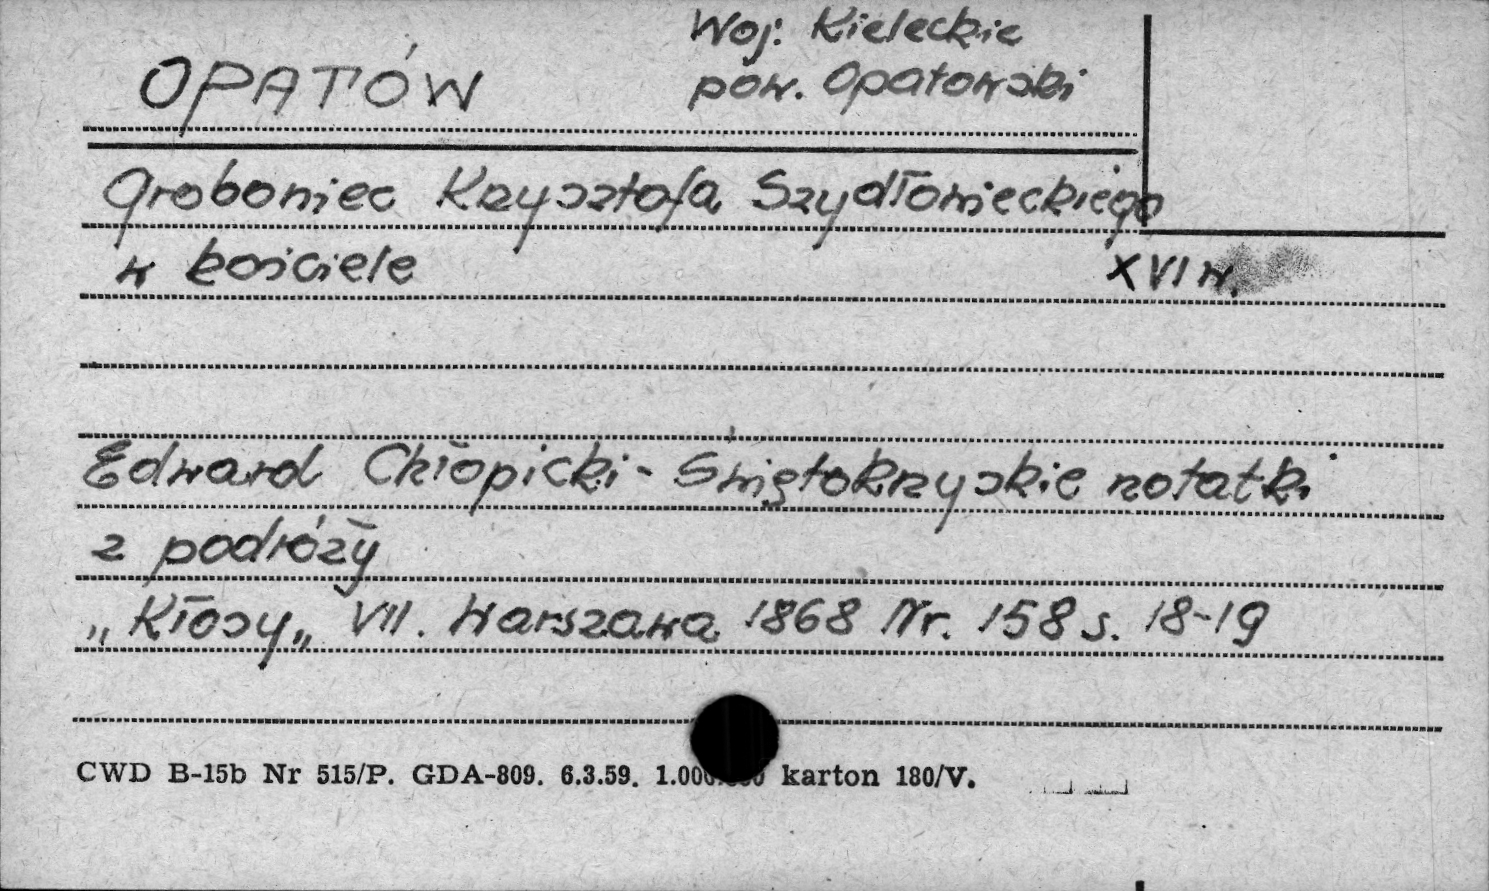 OPATÓW
Woj. Kieleckie
pow. Opatowski
Groboniec Krzysztofa Szydłowieckiego
w kościele XVI w.
Edward Chłopicki - Świętokrzyskie notatki
z podróży
„Kłosy„ VII. Warszawa 1868 Nr. 158 s. 18-19
CWD B-15b Nr 515/P. GDA-809. 6.3.59. karton 180/V.